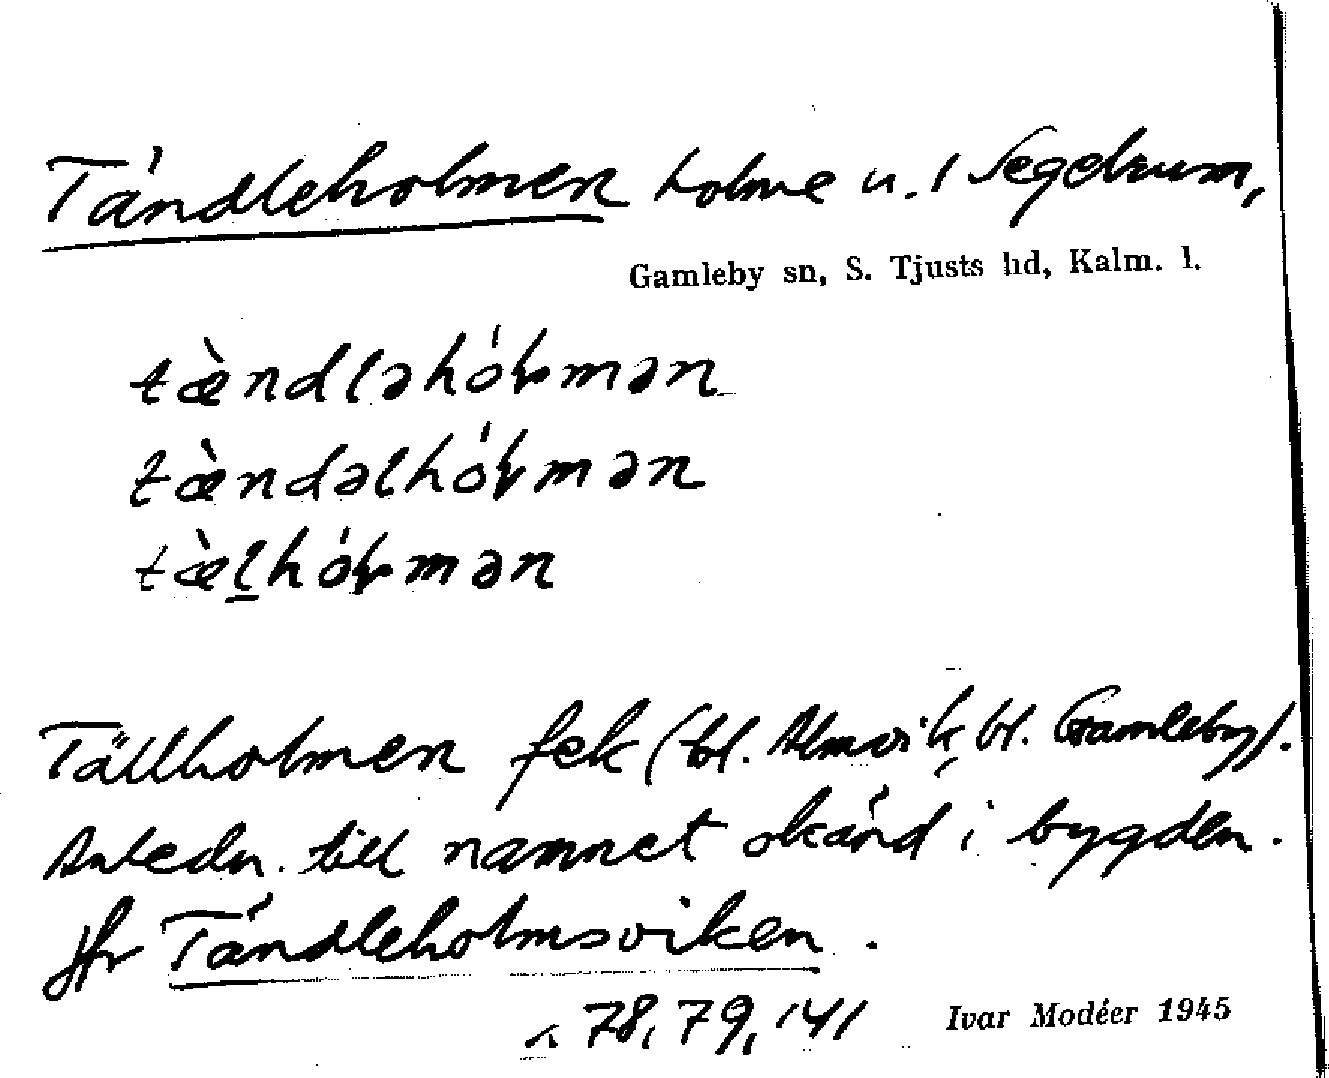 Tändleholmen holme u. / Segelrum,
Gamleby sn, S. Tjusts hd, Kalm. l.
tæ̀ndləhóɫmən
tæ̀ndəlhóɫmən
tæ̀l̲hóɫmən
Tällholmen fek (bl. Almvik, bl. Gamleby).
Anledn. till namnet okänd i bygden.
Jfr Tändleholmsviken.
78, 79, 141
Ivar Modéer 1945